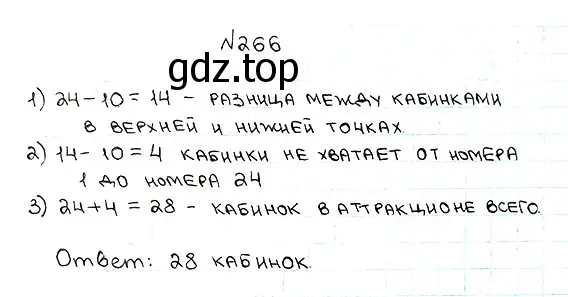 №266
gdz.top
1) 24 - 10 = 14 - РАЗНИЦА МЕЖДУ КАБИНКАМИ
В ВЕРХНЕЙ И НИЖНЕЙ ТОЧКАХ.
2) 14 - 10 = 4 КАБИНКИ НЕ ХВАТАЕТ ОТ НОМЕРА
1 ДО НОМЕРА 24
3) 24 + 4 = 28 - КАБИНОК В АТТРАКЦИОНЕ ВСЕГО.
Ответ: 28 КАБИНОК.